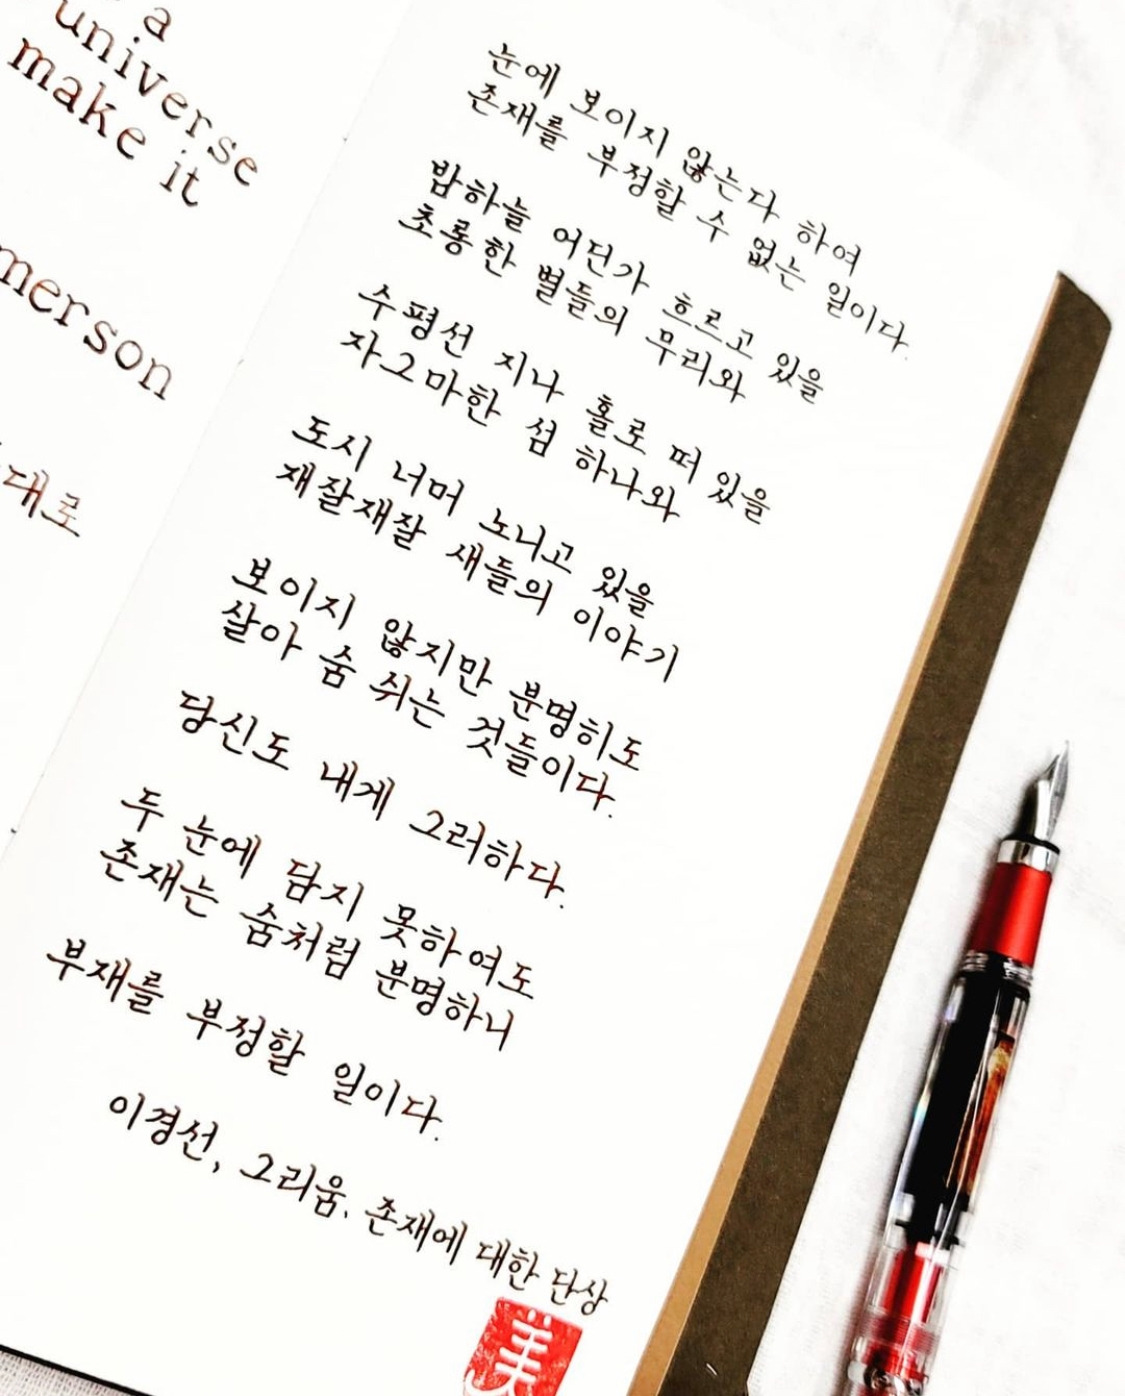 a
universe
make it
merson
대로
눈에 보이지 않는다 하여
존재를 부정할 수 없는 일이다.
밤하늘 어딘가 흐르고 있을
초롱한 별들의 무리와
수평선 지나 홀로 떠 있을
자그마한 섬 하나와
도시 너머 노니고 있을
재잘재잘 새들의 이야기
보이지 않지만 분명히도
살아 숨 쉬는 것들이다.
당신도 내게 그러하다.
두 눈에 담지 못하여도
존재는 숨처럼 분명하니
부재를 부정할 일이다.
이경선, 그리움. 존재에 대한 단상
美